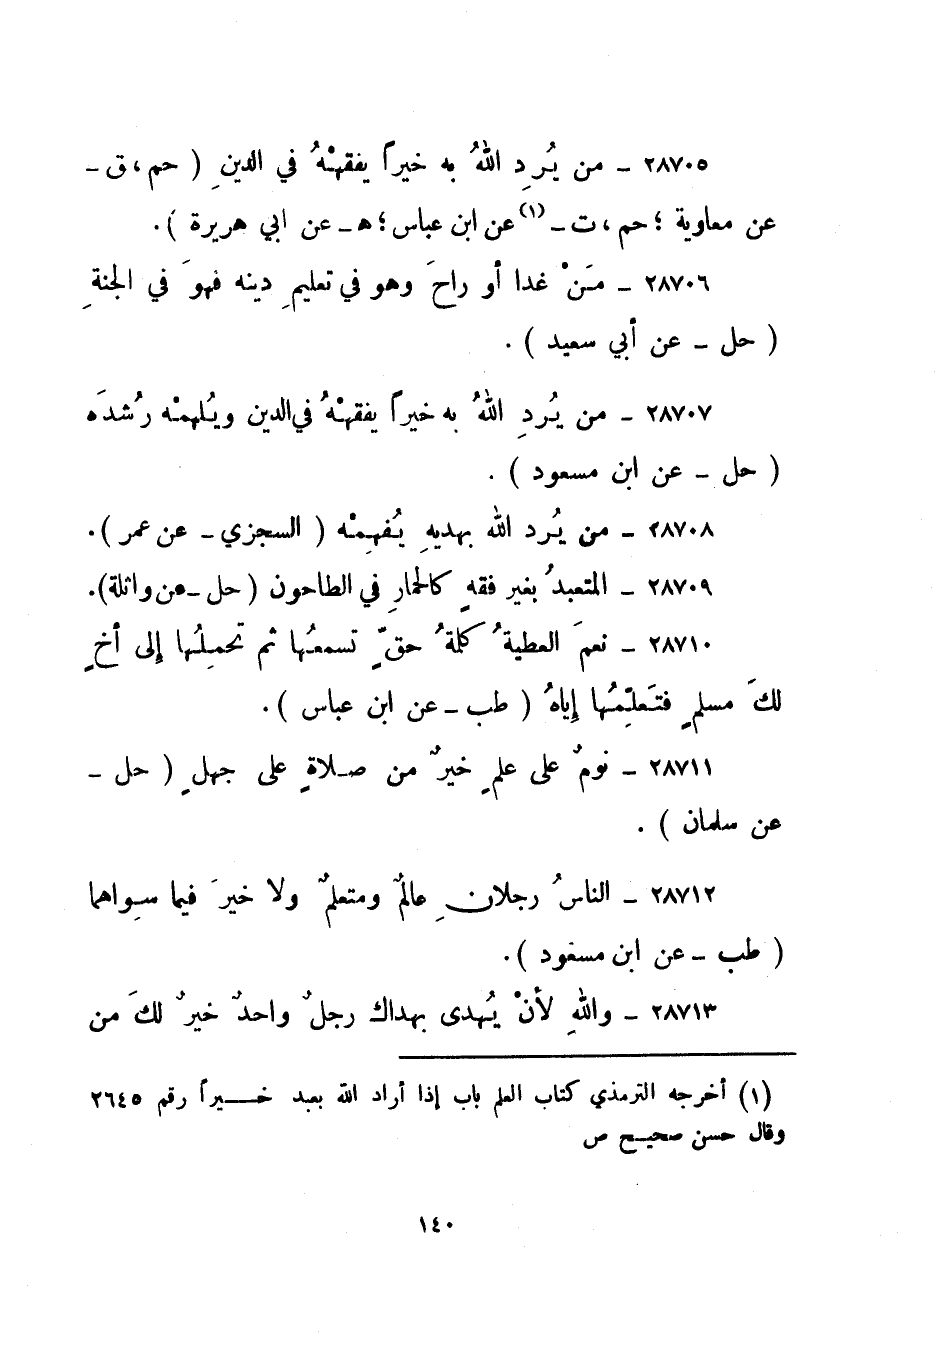 ٢٨٧٠٥ ـ من يُردِ اللهُ به خيراً يفقههُ في الدينِ ( حم ، ق ـ
عن معاوية ؛ حم ، ت ـ (١) عن ابن عباس ؛ هـ ـ عن ابي هريرة ).
٢٨٧٠٦ ـ مَنْ غدا أو راحَ وهو في تعليمِ دينه فهوَ في الجنةِ
( حل ـ عن أبي سعيد ) .
٢٨٧٠٧ ـ من يُردِ اللهُ به خيراً يفقههُ في الدين ويُلهمْه رُشدَه
( حل ـ عن ابن مسعود ) .
٢٨٧٠٨ ـ من يُرد الله بهديهِ يُفهِمْه ( السجزي ـ عن عمر ).
٢٨٧٠٩ ـ المتعبدُ بغير فقهٍ كالحمارِ في الطاحون ( حل ـ عن واثلة).
٢٨٧١٠ ـ نعمَ العطيةُ كلمةُ حقٍّ تسمعُها ثم تحمِلُها إلى أخٍ
لكَ مسلمٍ فتَعلِّمُها إياهُ ( طب ـ عن ابن عباس ).
٢٨٧١١ ـ نومٌ على علمٍ خيرٌ من صلاةٍ على جهلٍ ( حل ـ
عن سلمان ) .
٢٨٧١٢ ـ الناسُ رجلانِ عالمٌ ومتعلمٌ ولا خيرَ فيما سِواهما
( طب ـ عن ابن مسعود ).
٢٨٧١٣ ـ واللهِ لأنْ يُهدى بهداك رجلٌ واحدٌ خيرٌ لكَ من
(١) أخرجه الترمذي كتاب العلم باب إذا أراد الله بعبد خـيراً رقم ٢٦٤٥
وقال حسن صحيح ص
١٤٠